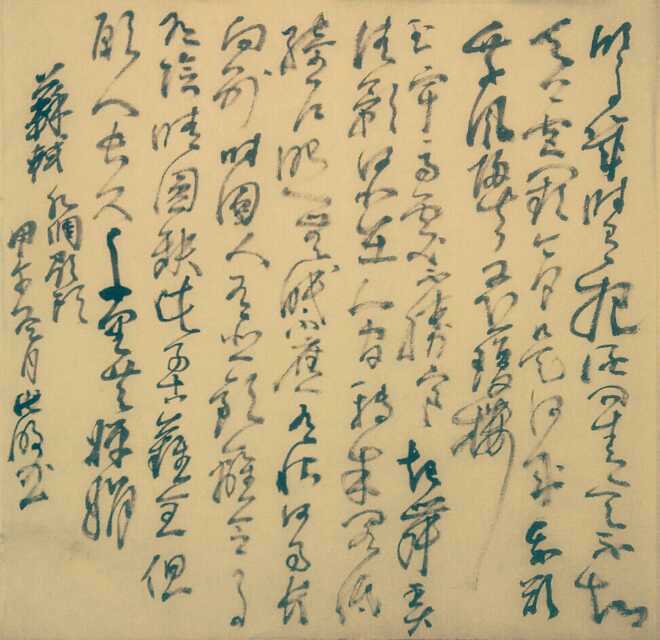 明月幾時有把酒問青天不知
天上宮闕今夕是何年我欲
乘風歸去又恐瓊樓
玉宇高處不勝寒起舞弄
清影何似在人間轉朱閣低
綺戶照無眠不應有恨何事長
向別時圓人有悲歡離合月
有陰晴圓缺此事古難全但
願人長久千里共嬋娟
蘇軾水調歌頭
甲午冬月